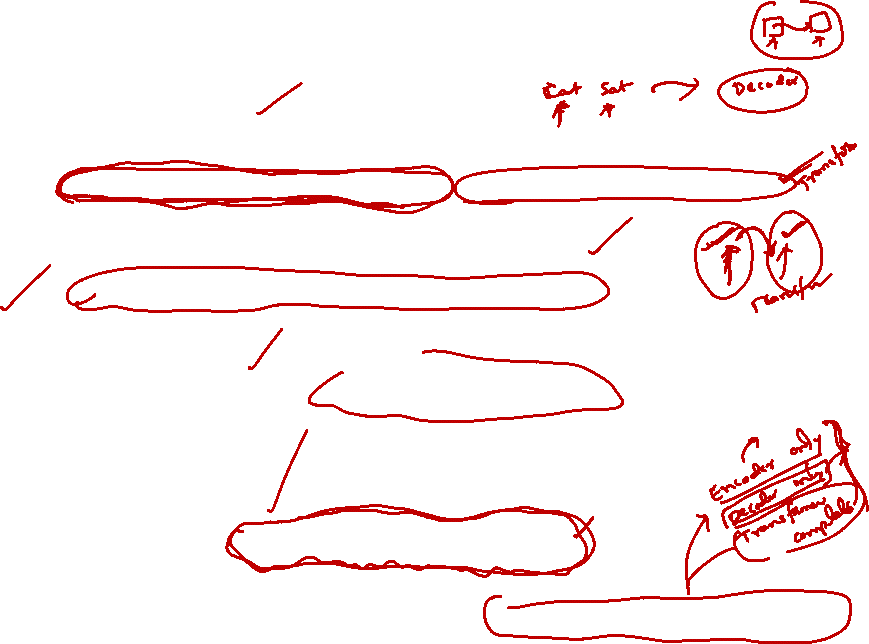 Cat Sat
Decoder
Transfor
Transfor
Encoder only
Decoder only
Transformer
complete